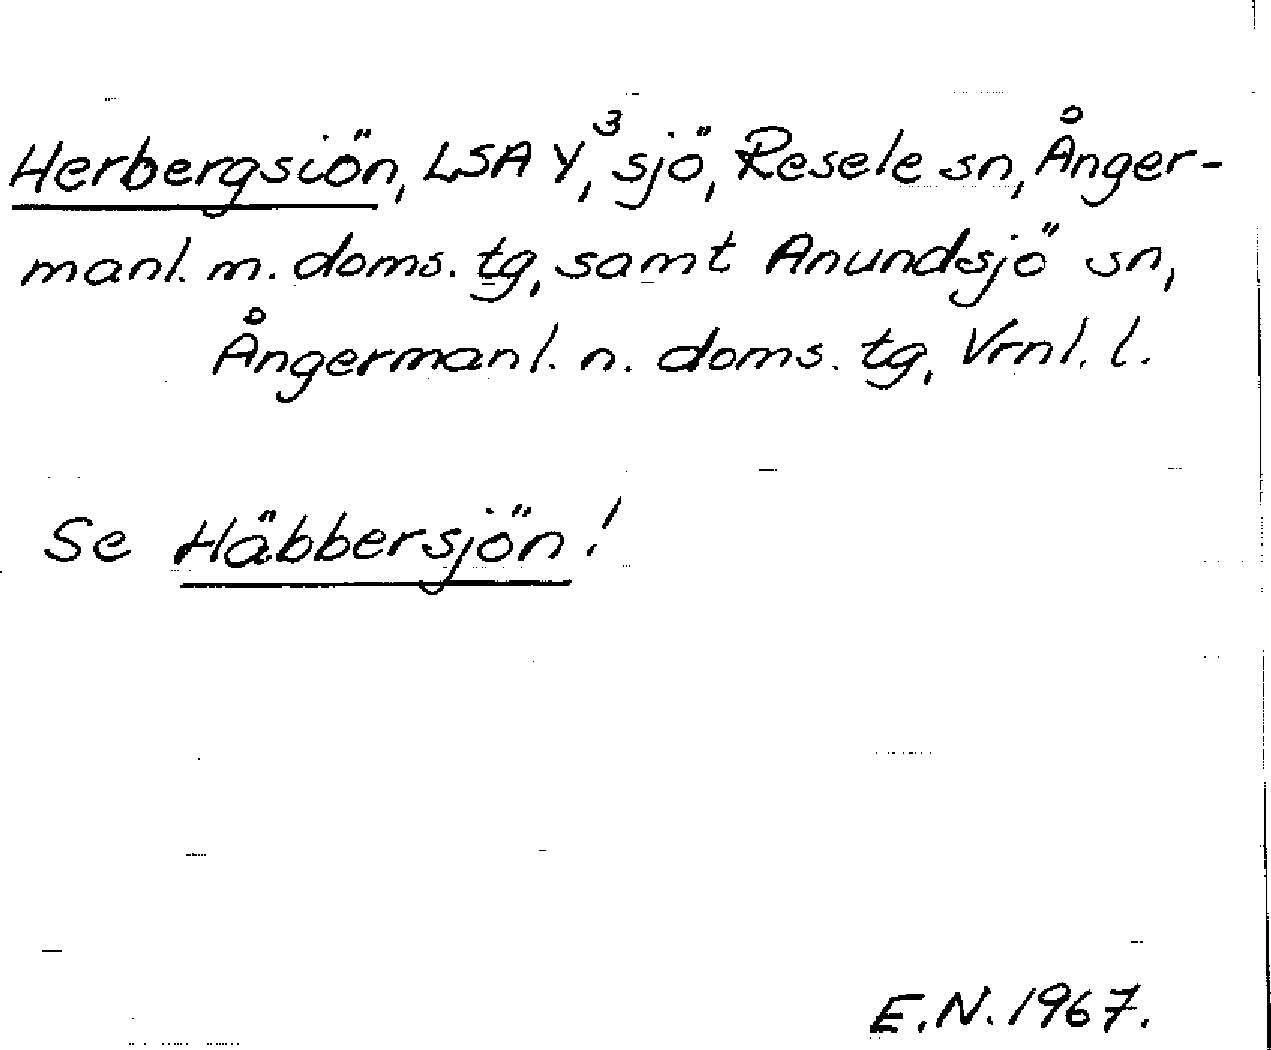 Herbergsiön, LSA Y³, sjö, Resele sn, Ånger-
manl. m. doms. tg, samt Anundsjö sn,
Ångermanl. n. doms. tg, Vrnl. l.
Se Häbbersjön!
E.N. 1967.